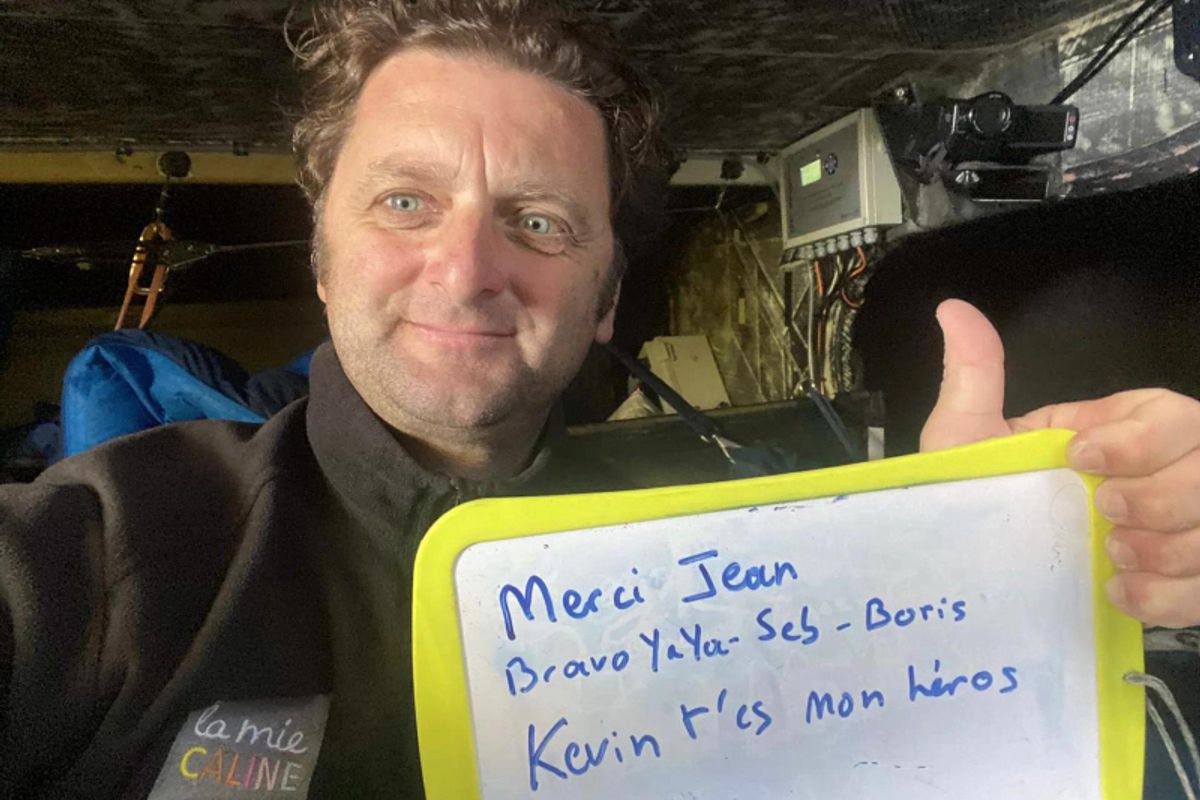 Merci Jean
Bravo YaYa - Seb - Boris
Kevin t'es mon héros
la mie
CALINE